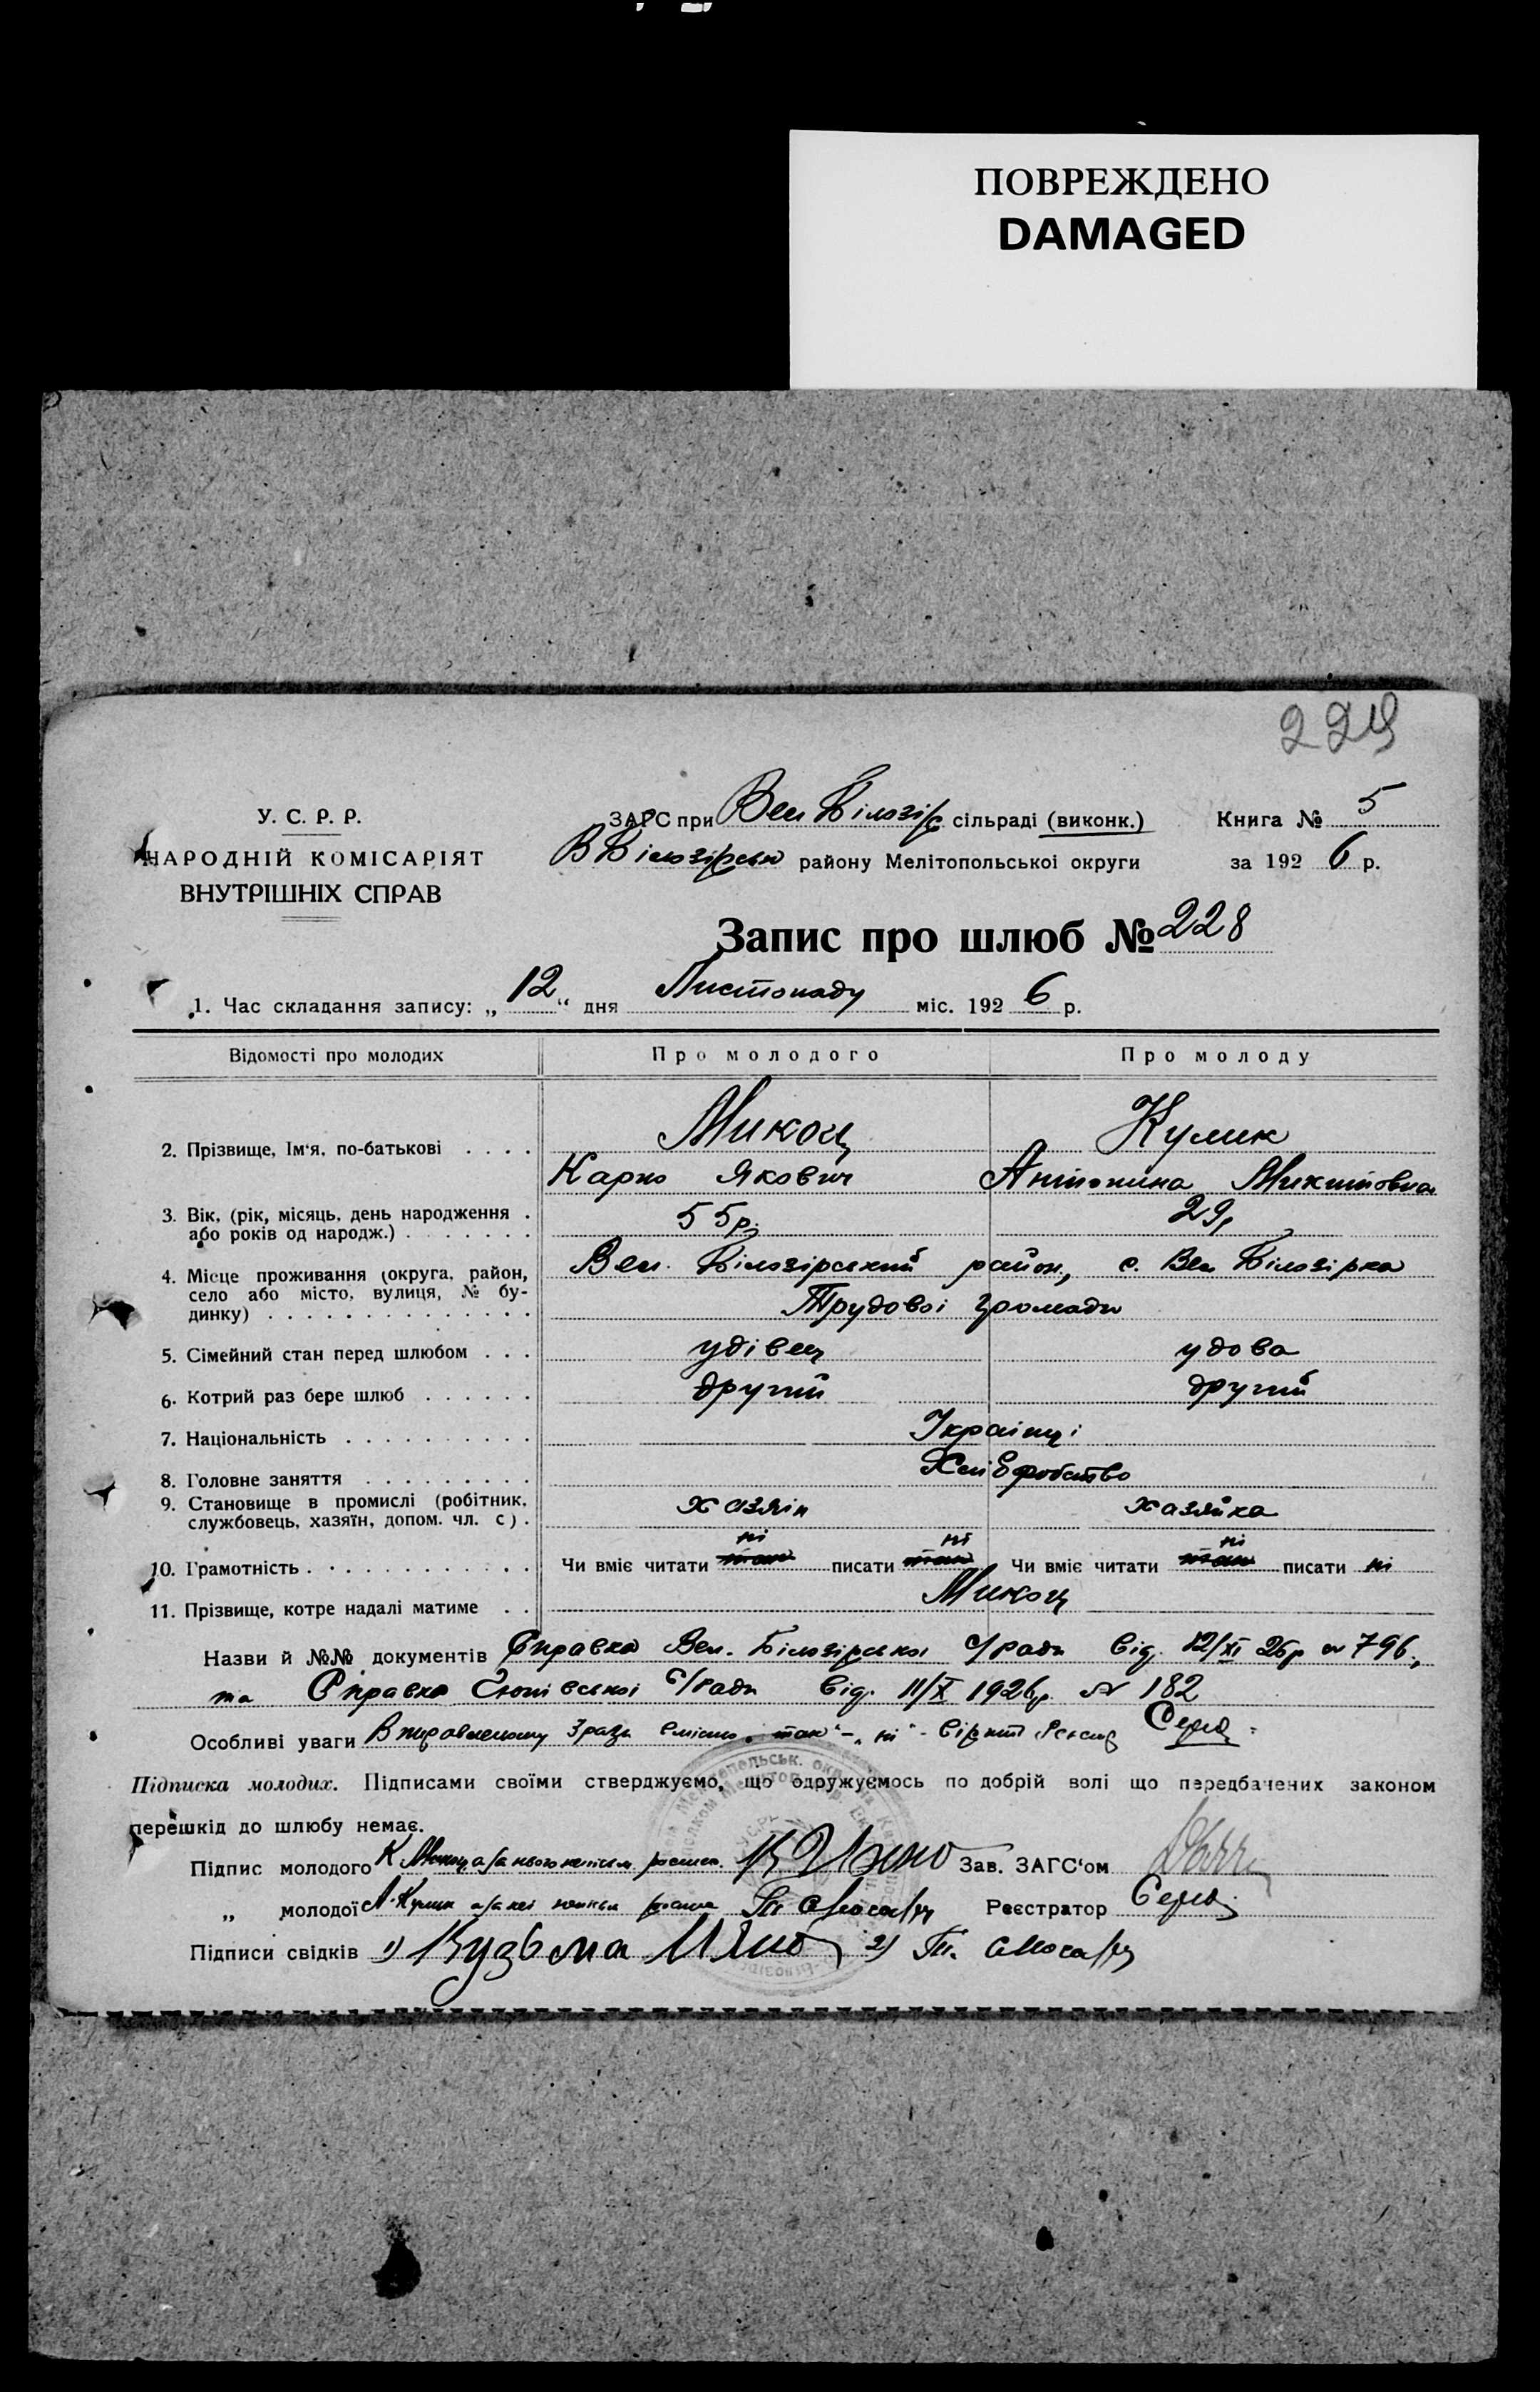 ПОВРЕЖДЕНО
DAMAGED
229
У. С. Р. Р.
НАРОДНІЙ КОМІСАРІЯТ
ВНУТРІШНІХ СПРАВ
ЗАГС при Вел Білозір сільраді (виконк.) Книга № 5
В Білозірськ району Мелітопольської округи за 1926 р.
Запис про шлюб № 228
1. Час складання запису: „12“ дня Листопаду міс. 1926 р.
Відомості про молодих Про молодого Про молоду
2. Прізвище, Ім'я, по-батькові . . . . Микоц Кулик
Карпо Якович Антонина Микитовна
3. Вік, (рік, місяць, день народження . або років од народж.) . . . . . . . 55р. 29р
4. Місце проживання (округа, район, Вел. Білозірський район, с. Вел Білозірка
село або місто, вулиця, № бу-
динку) . . . . . . . . . . . . . . Трудової громади
5. Сімейний стан перед шлюбом . . . удівец удова
6. Котрий раз бере шлюб . . . . . . другий другий
7. Національність . . . . . . . . . . Українці
8. Головне заняття . . . . . . . . . Хліборобство
9. Становище в промислі (робітник,
службовець, хазяїн, допом. чл. с) . хазяін хазяйка
10. Грамотність . . . . . . . . . . . Чи вміє читати так ні писати так ні Чи вміє читати так ні писати ні
11. Прізвище, котре надалі матиме . . Микоц
Назви й №№ документів Справка Вел. Білозірської С/ради від. 12/XI 26р № 796,
та Справка С/ради від. 11/X 1926р. № 182
Особливі уваги В зразк вмісто „так“ – „ні“ – вірит
Підписка молодих. Підписами своїми стверджуємо, що одружуємось по добрій волі що передбачених законом
перешкід до шлюбу немає.
Підпис молодого К Микоц а/а нього Зав. ЗАГС'ом
„ молодої А. Кулик а/а неї Реєстратор
Підписи свідків 1) Кузьма 2)